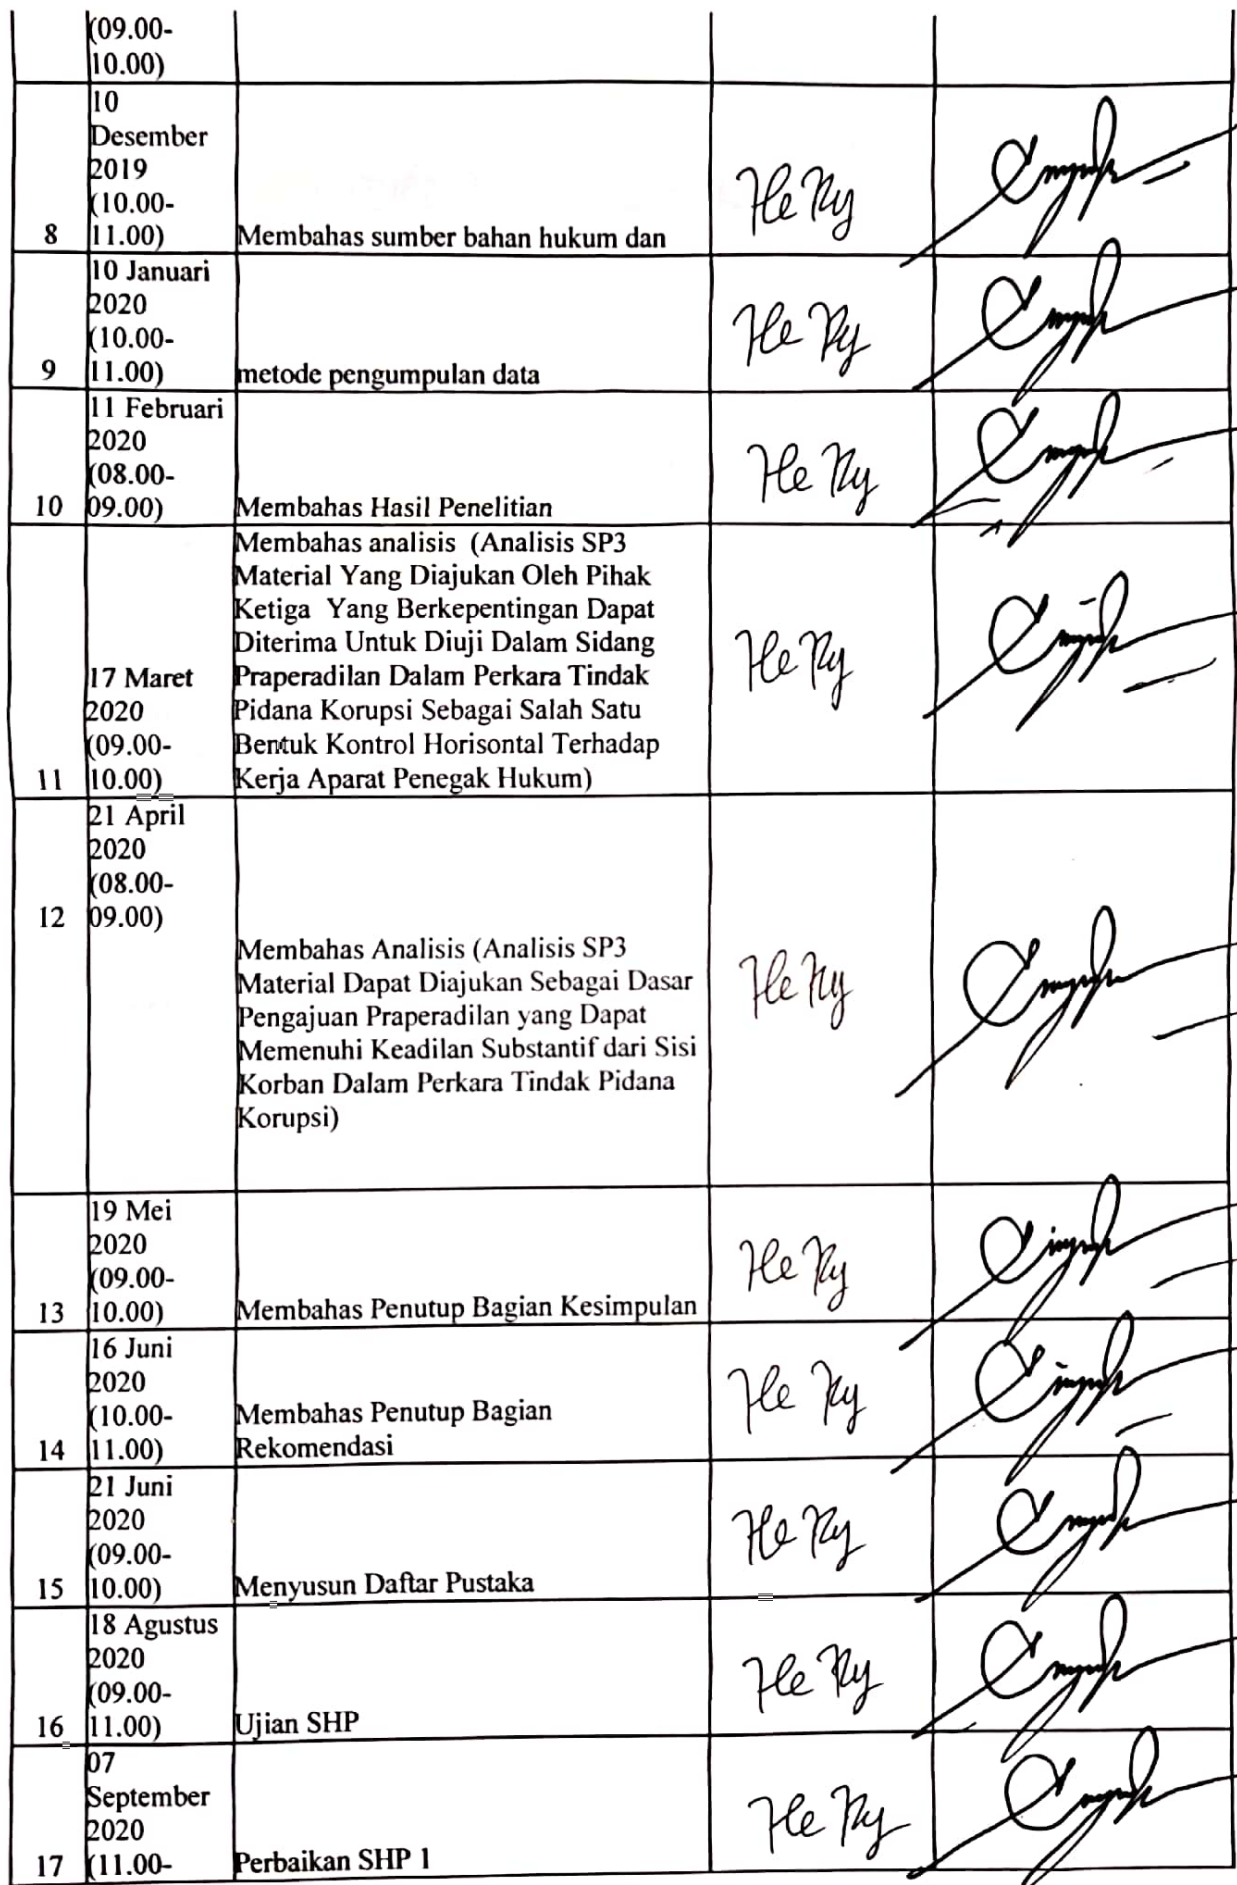 (09.00-
10.00)
10
Desember
2019
(10.00-
8 11.00) Membahas sumber bahan hukum dan
He Ry
10 Januari
2020
(10.00-
9 11.00) metode pengumpulan data
He Ry
11 Februari
2020
(08.00-
10 09.00) Membahas Hasil Penelitian
He Ry
Membahas analisis (Analisis SP3
Material Yang Diajukan Oleh Pihak
Ketiga Yang Berkepentingan Dapat
Diterima Untuk Diuji Dalam Sidang
17 Maret Praperadilan Dalam Perkara Tindak
2020 Pidana Korupsi Sebagai Salah Satu
(09.00- Bentuk Kontrol Horisontal Terhadap
11 10.00) Kerja Aparat Penegak Hukum)
He Ry
21 April
2020
(08.00-
12 09.00)
Membahas Analisis (Analisis SP3
Material Dapat Diajukan Sebagai Dasar
Pengajuan Praperadilan yang Dapat
Memenuhi Keadilan Substantif dari Sisi
Korban Dalam Perkara Tindak Pidana
Korupsi)
He Ry
19 Mei
2020
(09.00-
13 10.00) Membahas Penutup Bagian Kesimpulan
He Ry
16 Juni
2020
(10.00- Membahas Penutup Bagian
14 11.00) Rekomendasi
He Ry
21 Juni
2020
(09.00-
15 10.00) Menyusun Daftar Pustaka
He Ry
18 Agustus
2020
(09.00-
16 11.00) Ujian SHP
He Ry
07
September
2020
17 (11.00- Perbaikan SHP 1
He Ry